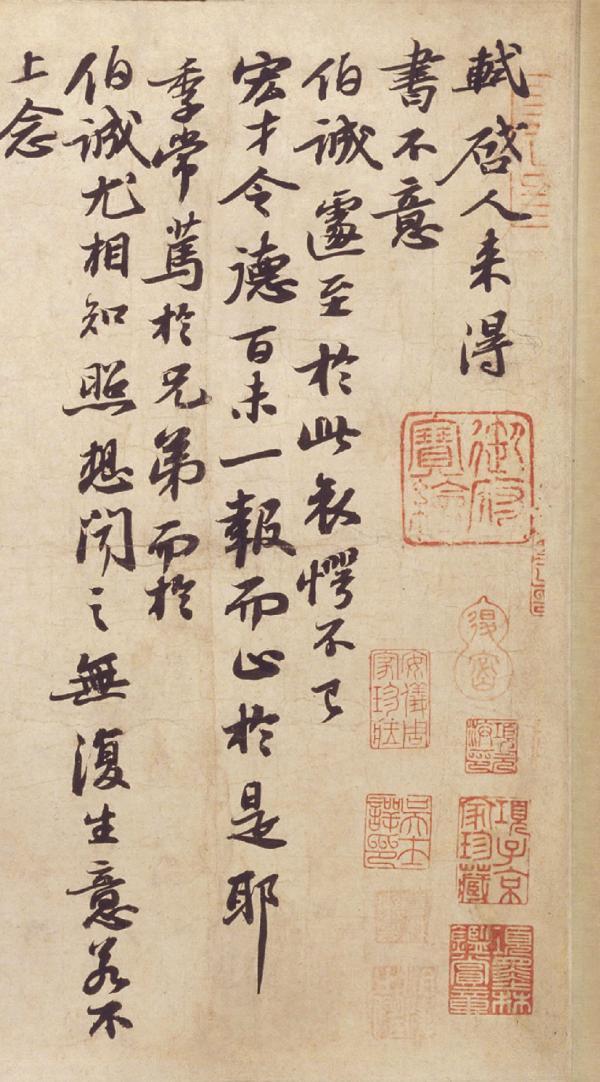 軾啓人來得
書不意
伯誠遽至於此哀愕不已
宏才令德百未一報而止於是耶
季常篤於兄弟而於
伯誠尤相知照想聞之無復生意若不
上念
御府寶繪
安儀周家珍藏
項子京家珍藏
項墨林鑑賞章